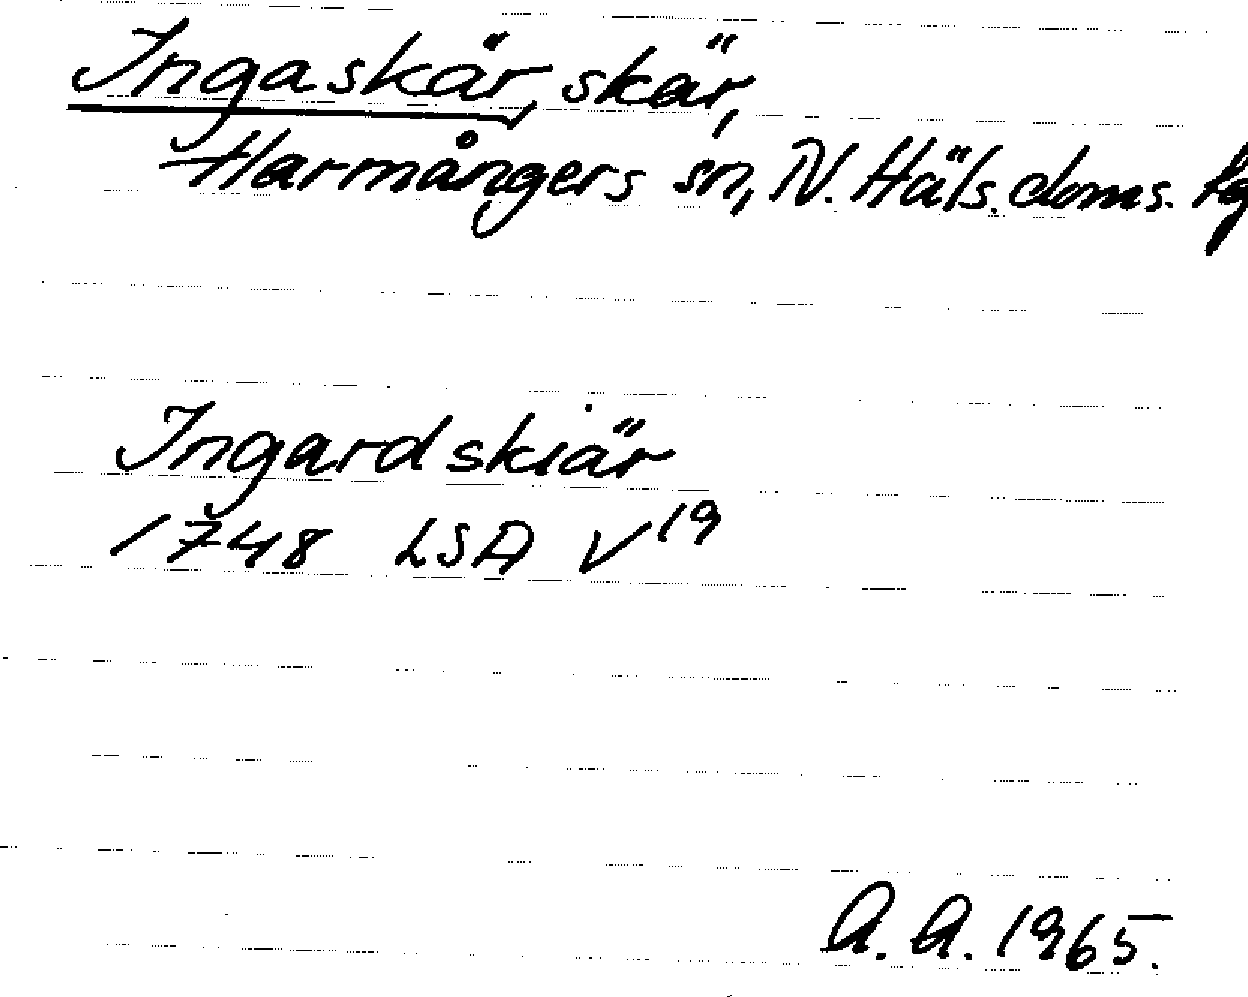 Ingaskär, skär,
Harmångers sn, N. Häls. doms. hg
Ingardskiär
1748 LSA V19
A. A. 1965.